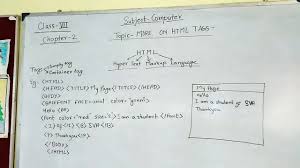 Class-VII
Subject-Computer
Chapter-2
Topic- MORE ON HTML TAGS-
HTML
Hyper Text Markup Language
Tags
empty tag
Container tag
Eg: <HTML>
<HEAD> <TITLE> My Page </TITLE> </HEAD>
<BODY>
color="green">
Hello <BR>
<font color="red" size= > I am a student </font>
<I> of </I> <B> SVP </B>
<P> Thankyou
</BODY>
</HTML>
My Page
Hello
I am a student of SVP
Thankyou